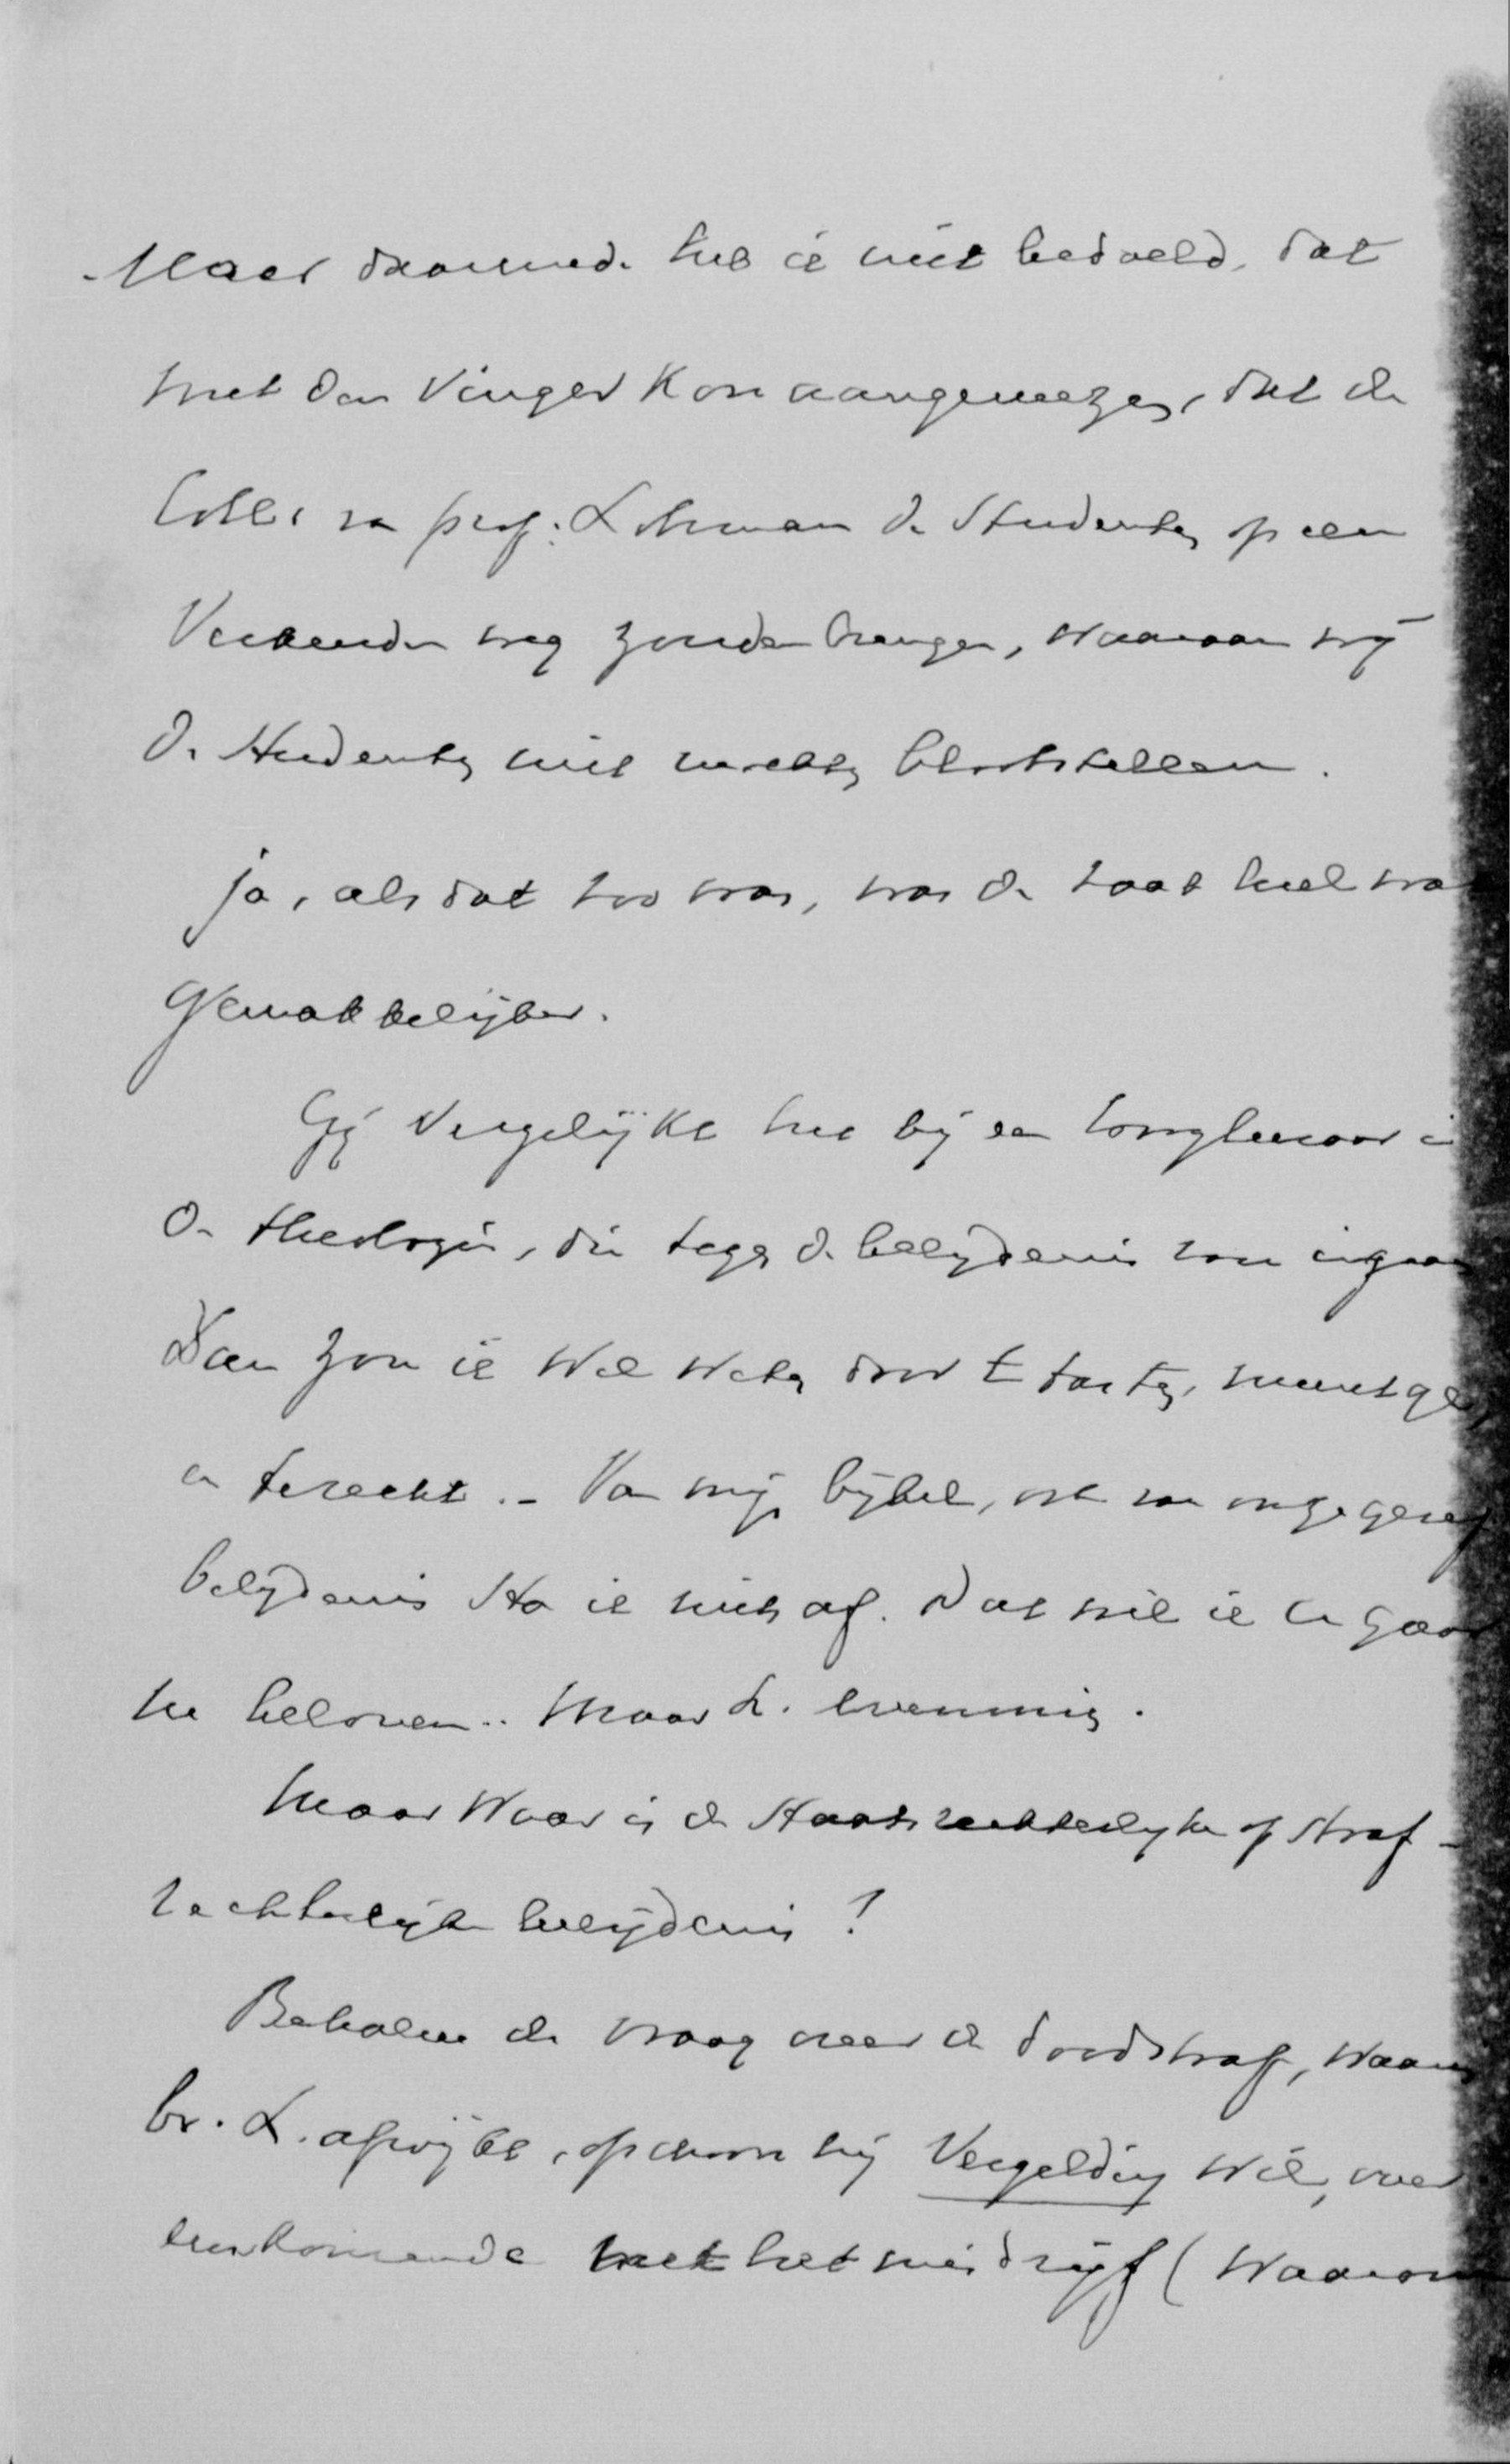 Maar daarmede heb ik niet bedoeld, dat
met den vinger kon aangewezen, dat de
Coll. van prof. Lohman de Studenten op een
Verkeerden weg zouden brengen, waaraan wij
de Studenten niet mochten blootstellen.
ja, als dat zoo was, was de zaak heel wat
gemakkelijker.
Gij vergelijkt het bij een hoogleeraar in
de theologie, die tegen de belijdenis zou ingaan
Dan zou ik wel weten door te tasten, meent ge,
en terecht. - Van mijn bijbel, ook van onze geref
belijdenis sta ik niets af. Dat wil ik U gaarne
beloven.. Maar L. evenmin.
Maar Waar is de Staatsrechterlijke of straf-
rechterlijke belijdenis?
Behalve de vraag over de doodstraf, waarin
br. L. afwijkt, ofschoon hij Vergelding wil, over
eenkomende met het misdrijf (Waarom